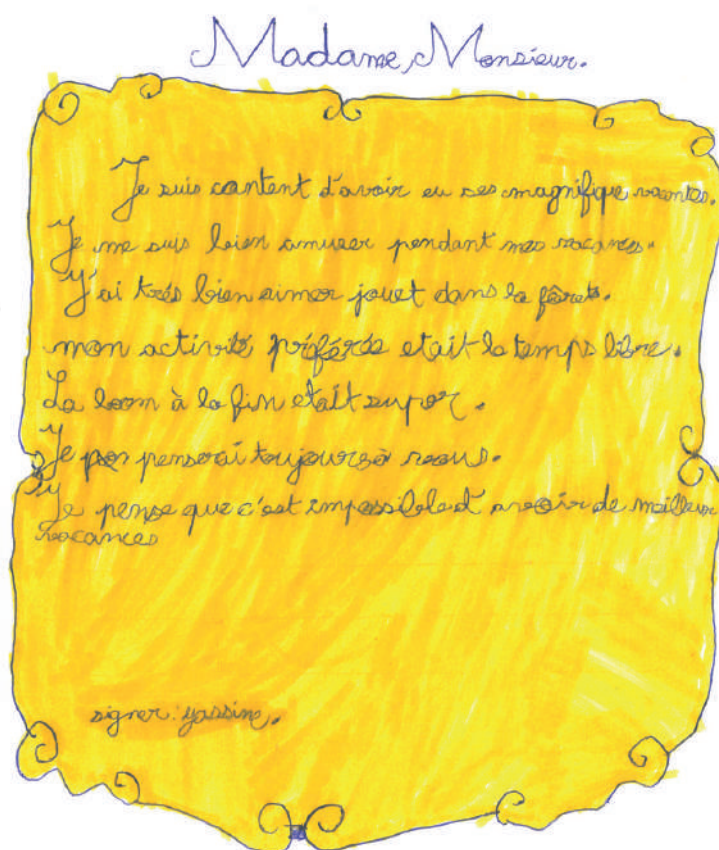 Madame, Monsieur.
Je suis content d'avoir eu ses magnifique vacantes.
Je me suis bien amuser pendant mes vacances.
J'ai trés bien aimer jouet dans la fôrets.
mon activité préférée etait le temps libre.
La boom à la fin etait super.
Je penserai toujours à vous.
Je pense que c'est impossible d'avoir de meilleur
vacances
signer: yassine.